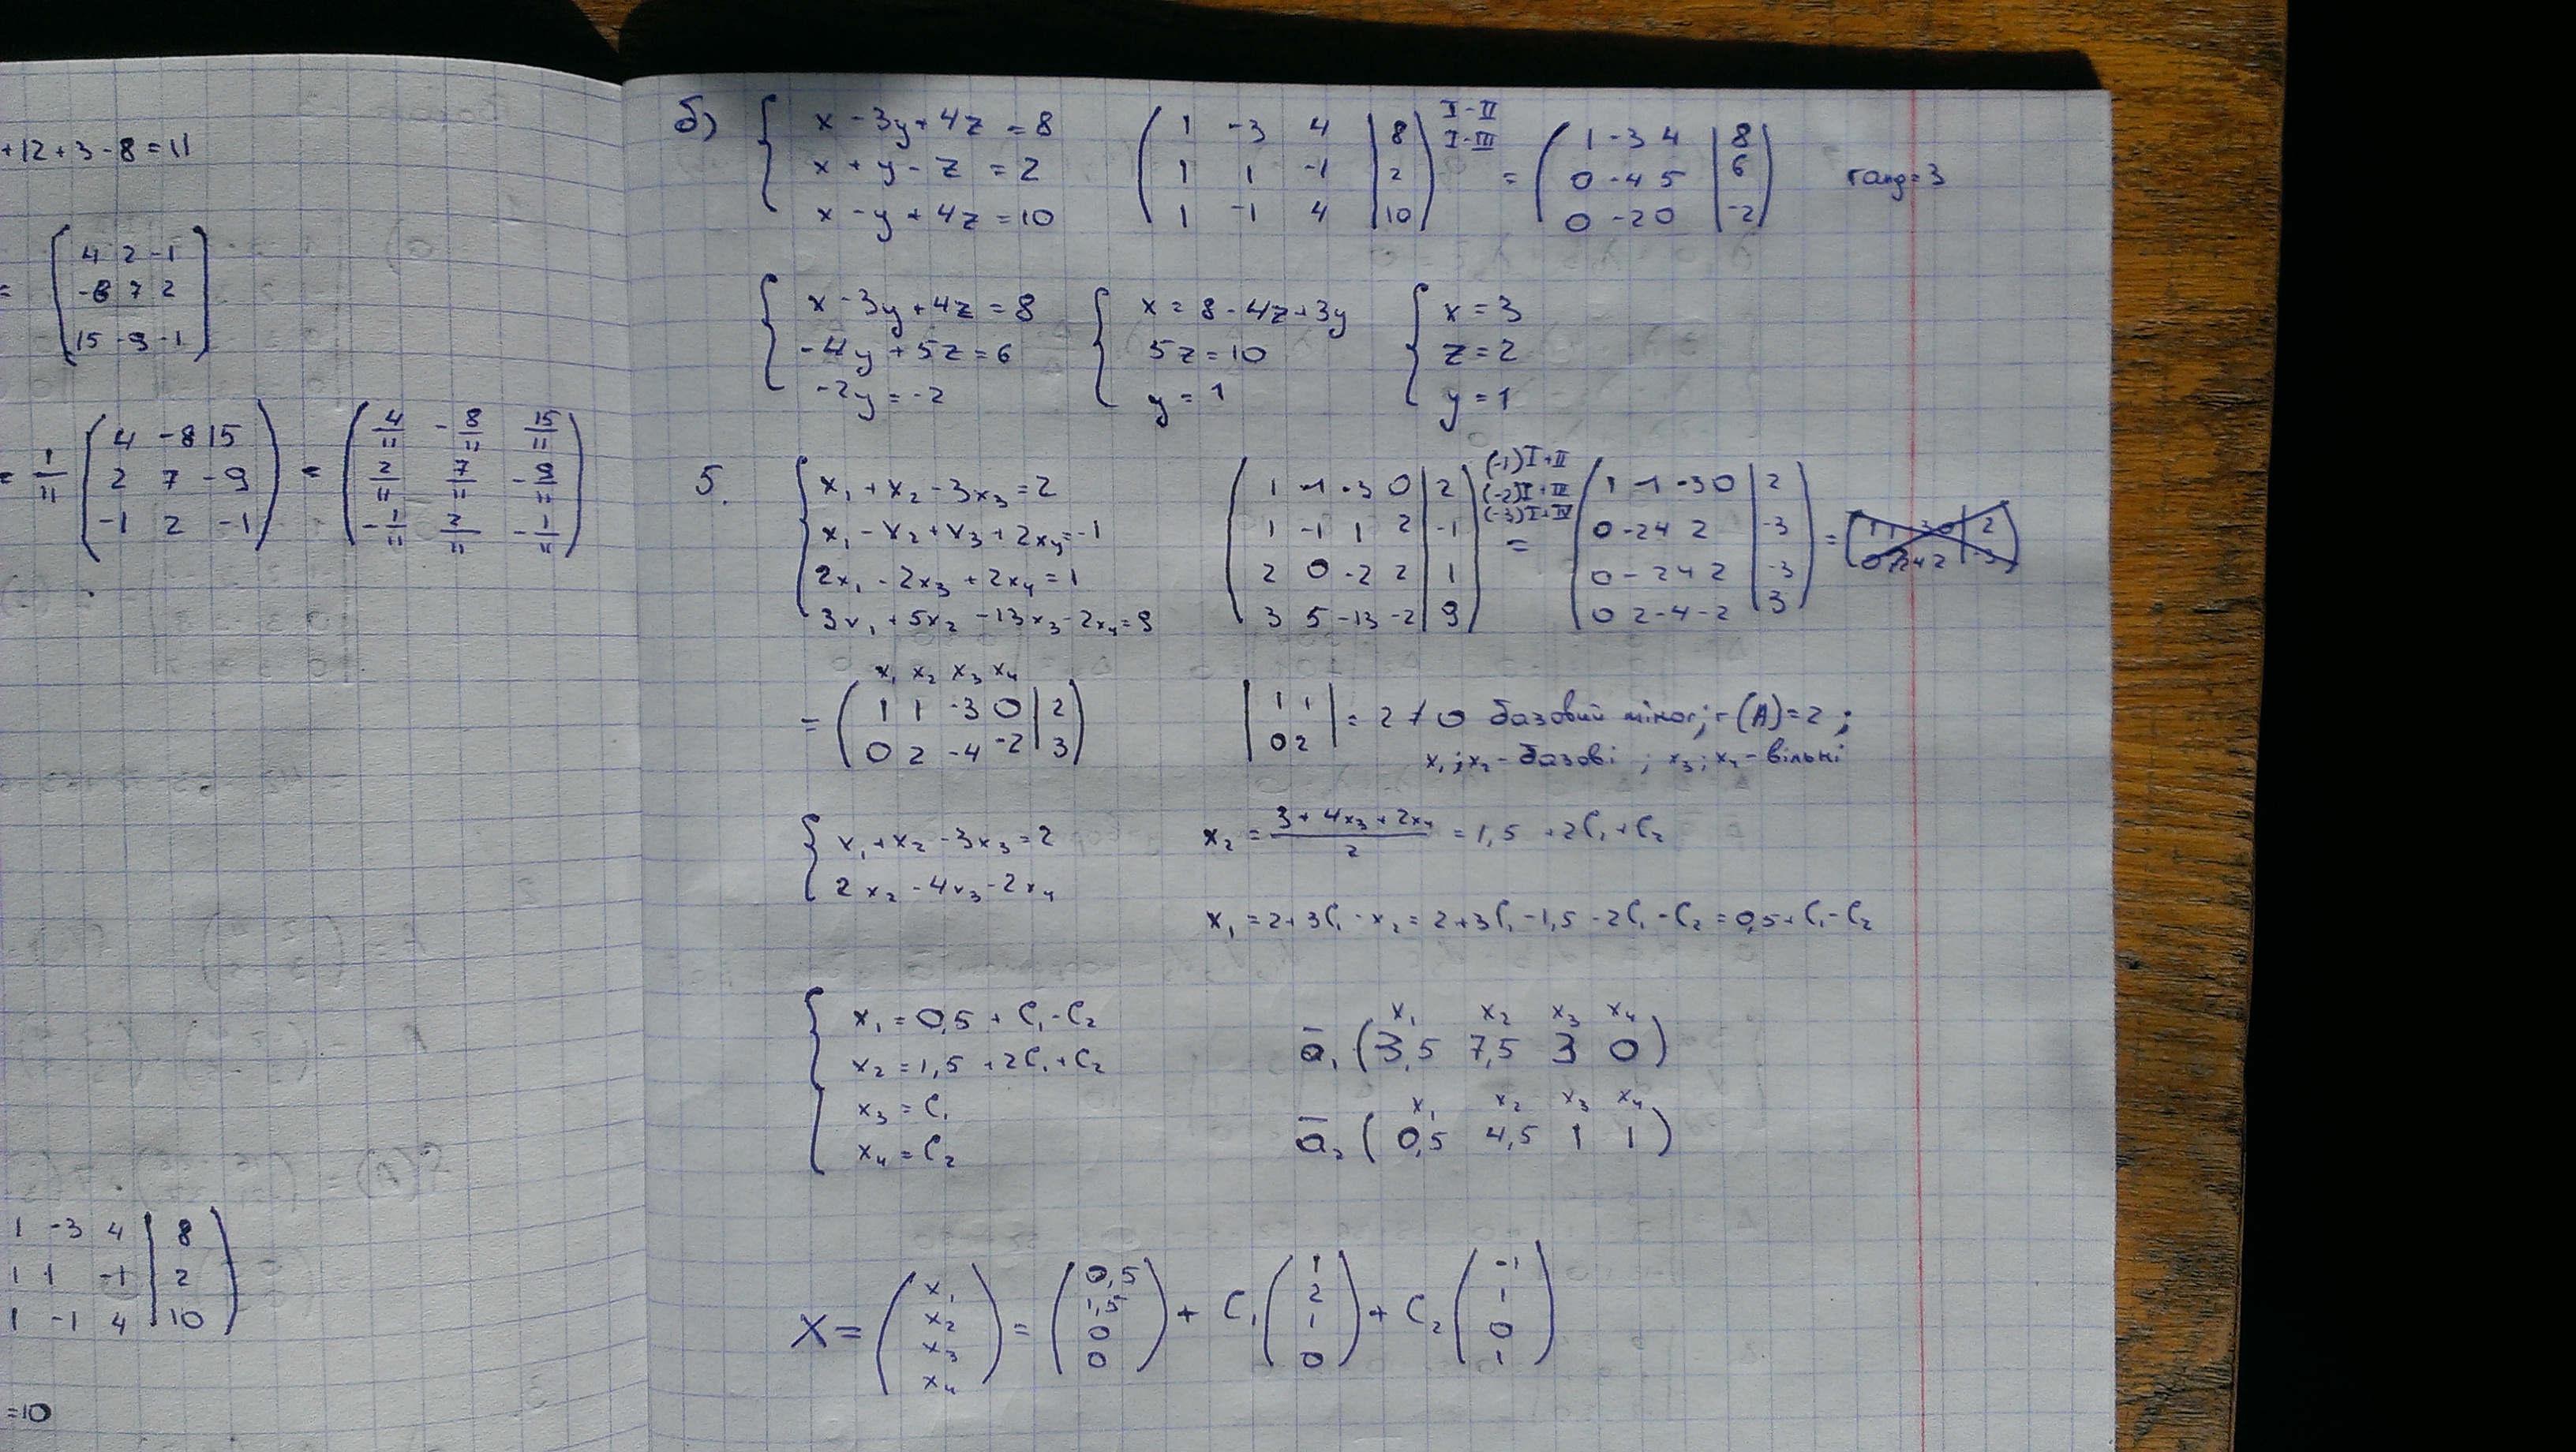 +12+3-8=11
= (4 2 -1
-8 7 2
15 -9 -1)
= 1/11 (4 -8 15
2 7 -9
-1 2 -1) = (4/11 -8/11 15/11
2/11 7/11 -9/11
-1/11 2/11 -1/11)
1 -3 4 | 8
1 1 -1 | 2
1 -1 4 | 10)
=10
б) { x - 3y + 4z = 8
x + y - z = 2
x - y + 4z = 10
(1 -3 4 | 8
1 1 -1 | 2
1 -1 4 | 10) I-II
I-III
= (1 -3 4 | 8
0 -4 5 | 6
0 -2 0 | -2) rang=3
{ x - 3y + 4z = 8
-4y + 5z = 6
-2y = -2
{ x = 8 - 4z + 3y
5z = 10
y = 1
{ x = 3
z = 2
y = 1
5. { x₁ + x₂ - 3x₃ = 2
x₁ - x₂ + x₃ + 2x₄ = -1
2x₁ - 2x₃ + 2x₄ = 1
3x₁ + 5x₂ - 13x₃ - 2x₄ = 9
(1 1 -3 0 | 2
1 -1 1 2 | -1
2 0 -2 2 | 1
3 5 -13 -2 | 9) (-1)I+II
(-2)I+III
(-3)I+IV
= (1 1 -3 0 | 2
0 -2 4 2 | -3
0 -2 4 2 | -3
0 2 -4 -2 | 3) =
x₁ x₂ x₃ x₄
= (1 1 -3 0 | 2
0 2 -4 -2 | 3)
|1 1
0 2| = 2 ≠ 0 базовий мінор; r(A)=2;
x₁; x₂ - базові ; x₃; x₄ - вільні
{ x₁ + x₂ - 3x₃ = 2
2x₂ - 4x₃ - 2x₄
x₂ = (3 + 4x₃ + 2x₄)/2 = 1,5 + 2C₁ + C₂
x₁ = 2 + 3C₁ - x₂ = 2 + 3C₁ - 1,5 - 2C₁ - C₂ = 0,5 + C₁ - C₂
{ x₁ = 0,5 + C₁ - C₂
x₂ = 1,5 + 2C₁ + C₂
x₃ = C₁
x₄ = C₂
x₁ x₂ x₃ x₄
a̅₁ (3,5 7,5 3 0)
x₁ x₂ x₃ x₄
a̅₂ (0,5 4,5 1 1)
X = (x₁
x₂
x₃
x₄) = (0,5
1,5
0
0) + C₁ (1
2
1
0) + C₂ (-1
1
0
1)